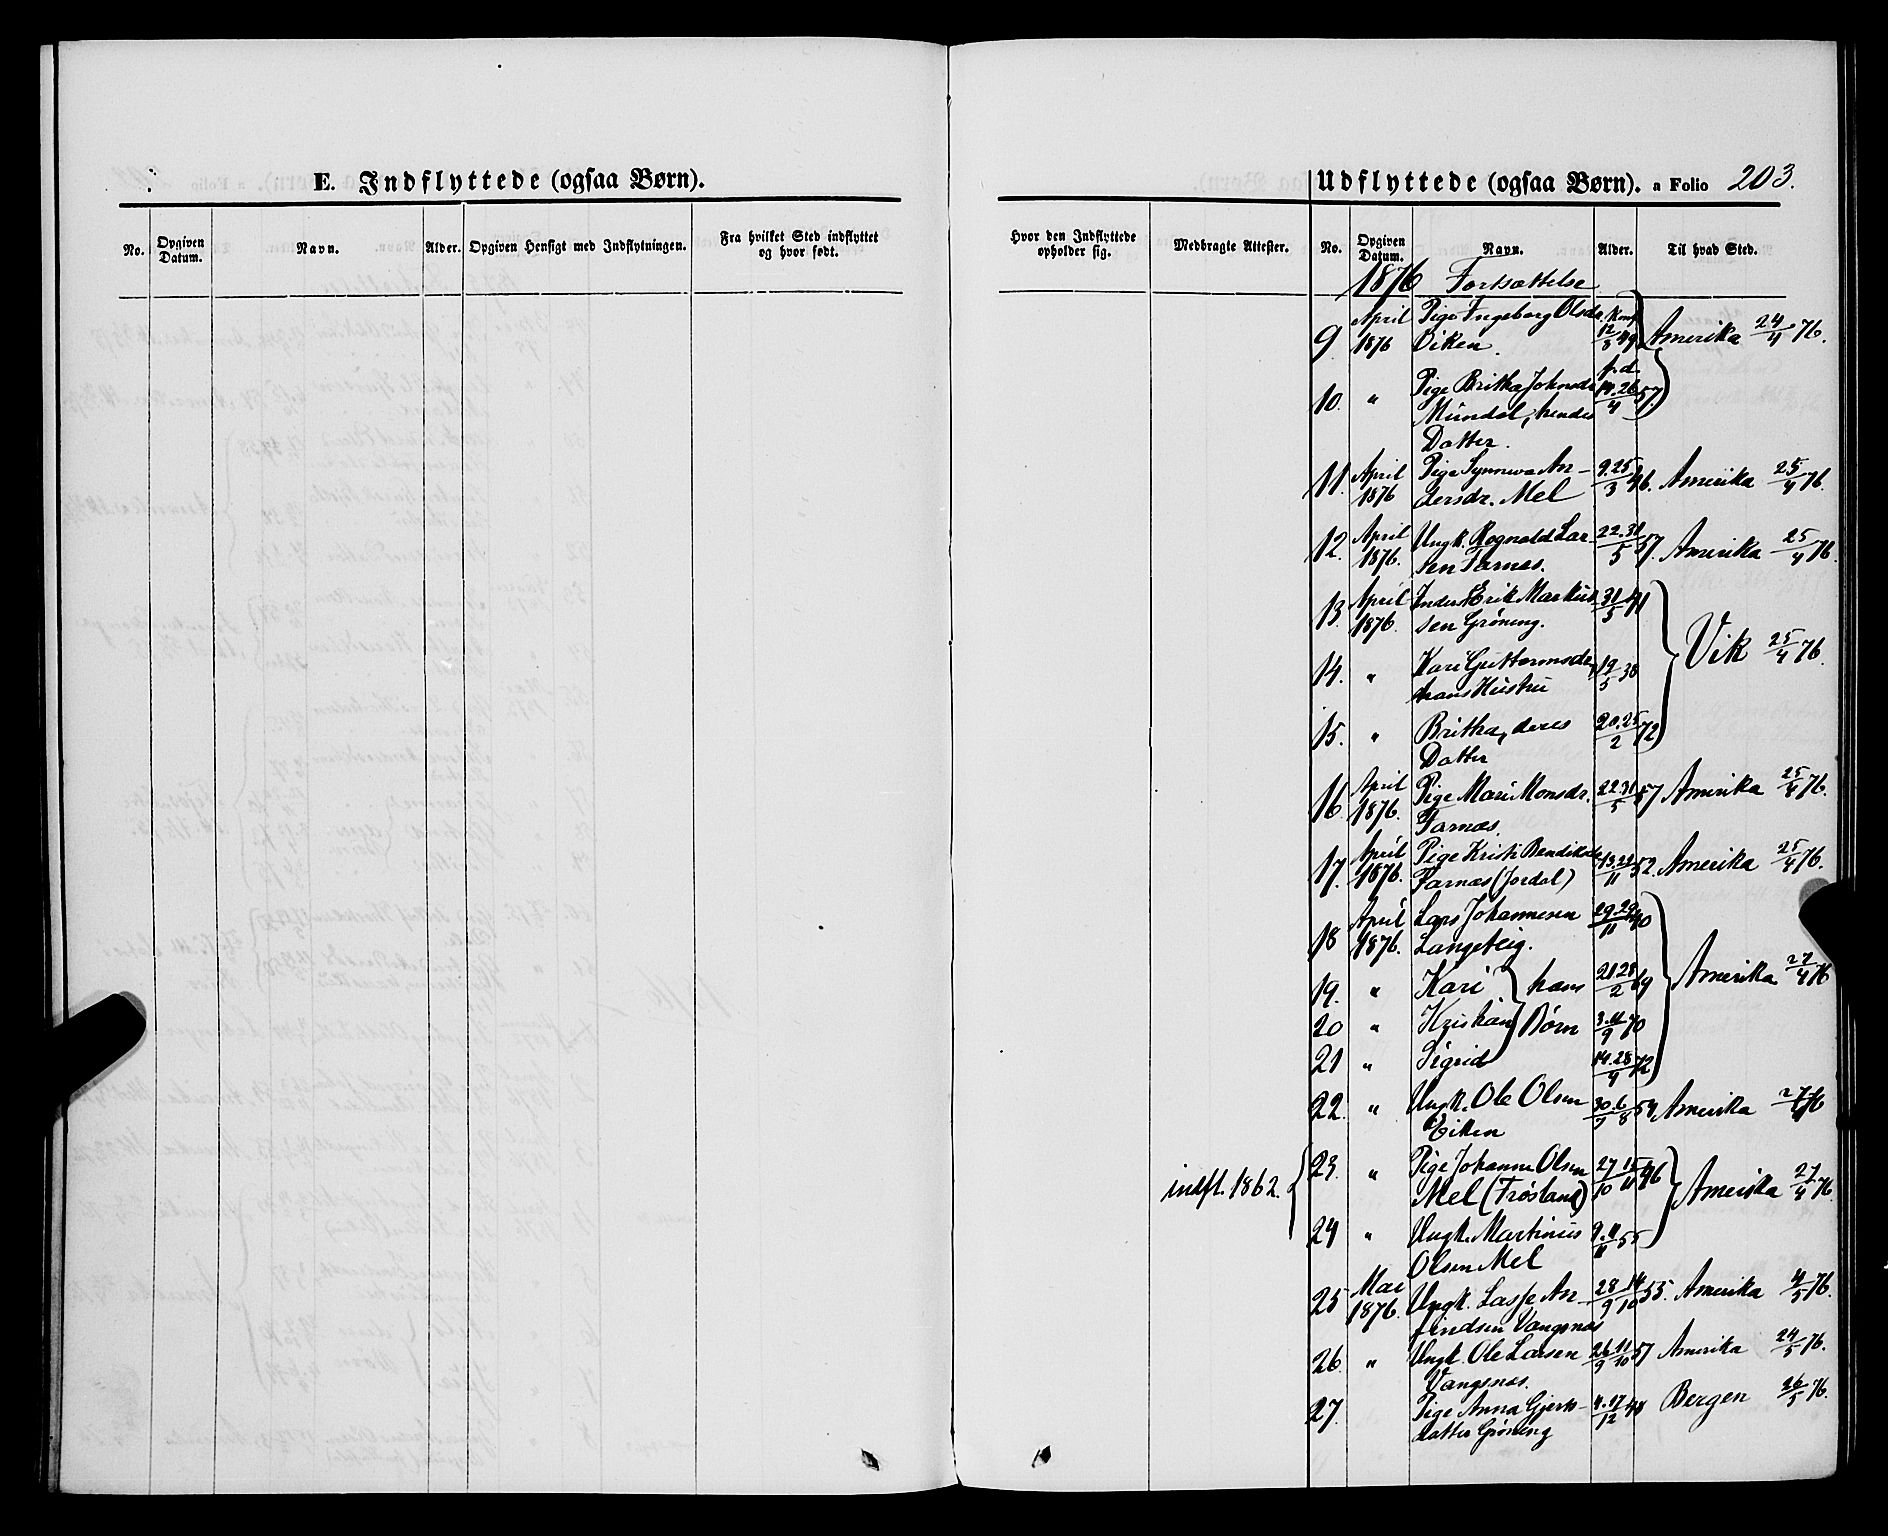 E. Indflyttede (ogsaa Børn).
No.
Opgiven Datum.
Navn.
Alder.
Opgiven Hensigt med Indflytningen.
Fra hvilket Sted indflyttet og hvor født.
Udflyttede (ogsaa Børn). a Folio 203.
Hvor den Indflyttede opholder sig.
Medbragte Attester.
No.
Opgiven Datum.
Navn.
Alder.
Til hvad Sted.
1876 Fortsættelse
9. April 1876 Pige Ingeborg Olsdr. Konf. 12/8 49 Amerika 24/4 76.
Viken.
10. " Pige Britha Johnsdr. fød. 14.26/4 57.
Mundal, hendes
Datter.
11. April 1876 Pige Synneva An- 9.25/3 46. Amerika 25/4 76.
dersdr. Mel
12. April 1876. Ungk. Rognald Lar- 22.31/5 57. Amerika 25/4 76.
sen Farnæs.
13. April 1876. Inderst Erik Markus- 31/5 41 Vik 25/4 76.
sen Grøning.
14. " Kari Guttormsdr. 19/5 38
hans Hustru
15. " Britha, deres 20.25/2 72
Datter
16. April 1876. Pige Mari Monsdr. 22.31/5 57 Amerika 25/4 76.
Farnæs.
17. April 1876. Pige Kristi Bendiksdr. 13.29/11 52. Amerika 25/4 76.
Farnæs (Jordal)
18 April 1876. Lars Johannesen 29.29/11 40 Amerika 27/4 76
Langeteig.
19. " Kari hans 21.28/2 69
20 " Kristian Børn 3.11/9 70
21 " Sigrid 14.28/4 72
22. " Ungk. Ole Olsen 30.6/7 8 54, Amerika 27/4 76
Eiken
indfl. 1862. 23. " Pige Johanne Olsen 27/10 15/11 46 Amerika 27/4 76.
Mel (Trøsland)
24 " Ungk. Martinus 9.11/11 55
Olsen Mel
25 Mai 1876. Ungk. Lasse An- 28/9 14/10 55. Amerika 4/5 76.
findsen Vangsnæs
26. " Ungk. Ole Larsen 26/9 11/10 57 Amerika 24/5 76.
Vangsnæs.
27. Pige Anna Gjerts- 4.17/12 48 Bergen 26/5 76.
datter Grøning